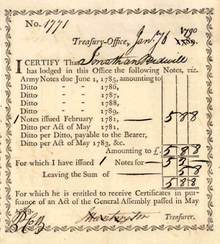 No. 1771
Treasury-Office, Jan. 1790
1789.
I CERTIFY That Jonathan
has lodged in this Office the following Notes, viz.
Army Notes due June 1, 1785, amounting to
Ditto of 1786,
Ditto of 1787,
Ditto of 1788,
Ditto of 1789,
Notes issued February 1781,
5 8 8
Ditto per Act of May 1781,
Ditto per Ditto, payable to the Bearer,
Ditto per Act of May 1783, &c.
Amounting to £.
5 8 8
For which I have issued 1 Notes for
5 8 8
Leaving the Sum of
5 8 8
For which he is entitled to receive Certificates in pursuance of an Act of the General Assembly passed in May
Treasurer.